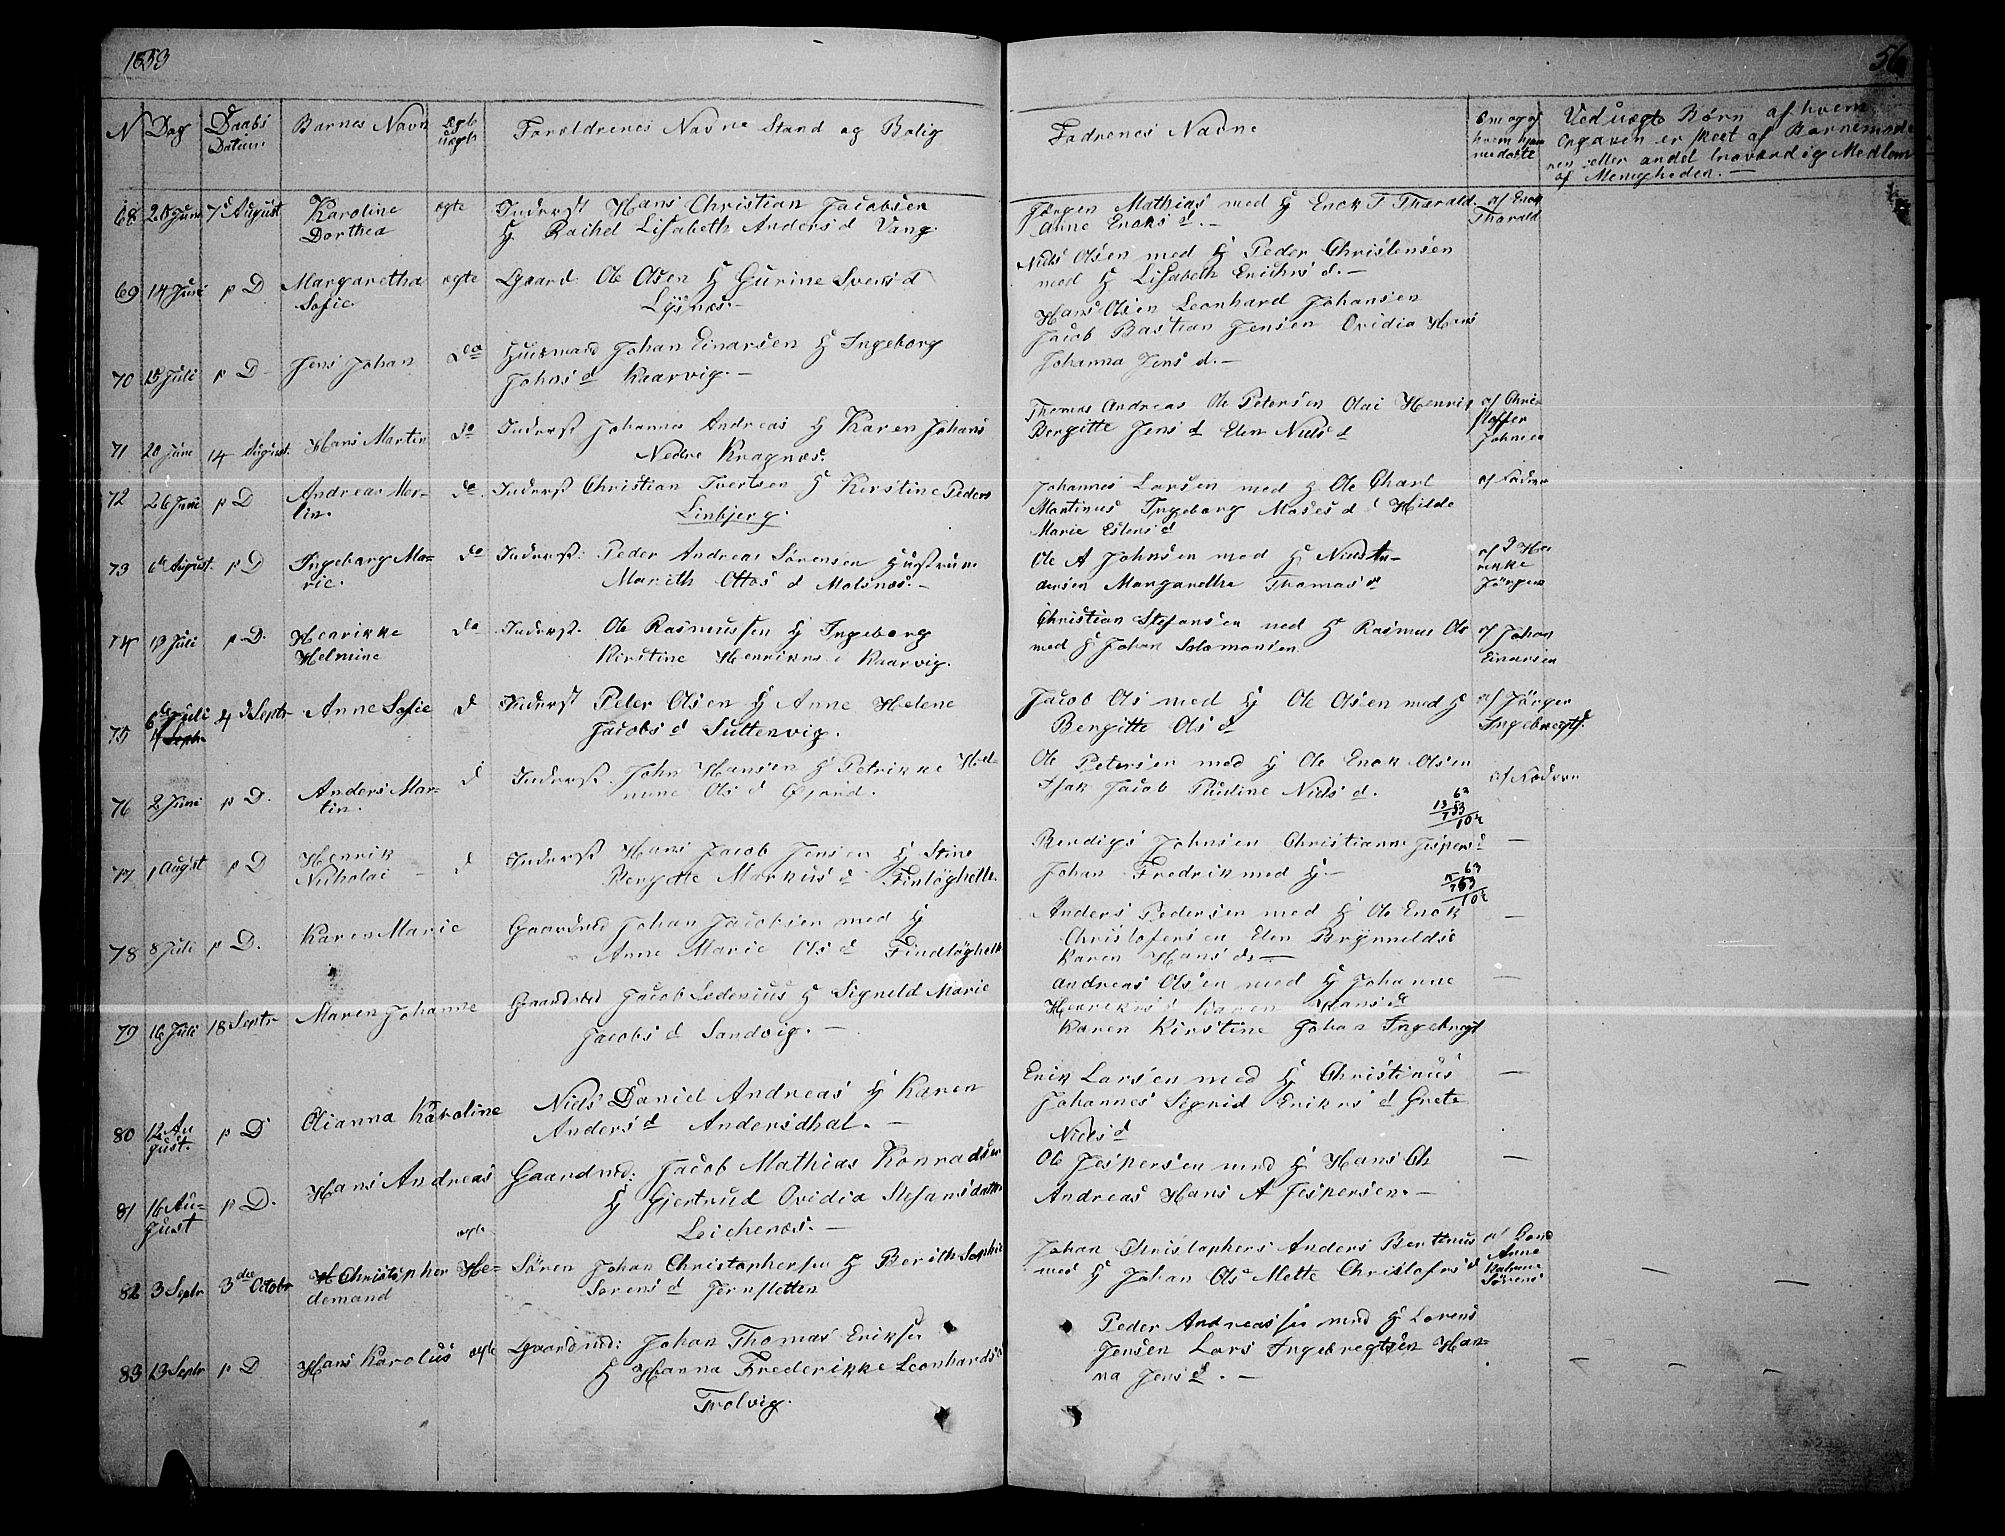 1853
56
N Dag Daabs Datum. Barnes Navn Ægte uægte Forældrenes Navne Stand og Bolig
Fadrenes Navne
Om og af hvem hjemmedøbte
Ved uægte Børn af hvem
Opgaven er skeet af Barnemode
ren eller andet troværdig Medlem
af Menigheden. —
68 20 Juni 7d August Karoline Dorthea ægte Inderst Hans Christian Jacobsen
H Rachel Lisabeth Anders d Vang.
Jørgen Mathias med H Enok T Tharald.
Anne Enoks d. —
af Enok Tharald
69 14 Juni p D Margaretha Sofie ægte Gaard Ole Olsen H Gurine Svens d
Lysnæs. —
Niels Olsen med H Peder Christensen
med H Lisabeth Erichs d. —
70 15 Juli p D Jens Johan do Huusmand Johan Einarsen H Ingeborg
Johns d Kaarvig. —
Hans Olsen Leonhard Johansen
Jacob Bastian Jensen Ovidia Hans
Johanna Jens d. —
71 20 Juni 14 August. Hans Martin do Inderst Johannes Andreas H Karen Johans
Nedre Kragnæs.
Thomas Andreas Ole Petersen Olai Henrik
Bergitte Jens d Elen Niels d
af Chri-
stoffer
Johnsen
72 26 Juni p D Andreas Mar-
tin. do Inderst Christian Ivertsen H Kirstine Peders
Linbjerg.
Johannes Larsen med H Ole Charl
Martinus Ingeborg Moses d Hilde
Marie Estens d
af Fadren
73 6te August. p D Ingeborg Ma-
rie. do Inderst: Peder Andreas Sørensen Hustrue
Marith Ottos d Malsnæs. —
Ole A Johnsen med H Niels An-
dersen Margarethe Thomas d
74 13 Juli p D. Henrikke
Helmine do Inderst. Ole Rasmussen H Ingeborg
Kirstine Henriks d Kaarvig.
Christian Stefansen med H Rasmus Ols
med H Johan Salamonsen
af Johan
Einarsen
75 6te Juli 4 d Septr Anne Sofie d Inderst Peter Olsen H Anne Helene
Jacobs d Sultenvig.
Jacob Ols med H Ole Olsen med H
Bergitte Ols d
af Jørgen
Ingebregts.
76 2 Juni p D. Anders Mar-
tin. d Inderst John Hansen H Petrikke Hel-
mine Ols d
Ole Petersen med H Ole Enok Olsen
Isak Jacob Pauline Niels d.
63
53
10
77 1 August p D Henrik
Nicholai d Inderst Hans Jacob Jensen H Stine
Bergitte Markus d Finløghelle
Bendigs Johnsen Christianne Jespers d —
Johan Fredrik med H. —
63
53
10
78 8 Juli p D. Karen Marie Gaardmd Johan Jacobsen med H
Anne Marie Ols d Findløghelle
Anders Pedersen med H Ole Enok —
Christofersen Elen Brynnilds d
Karen Hans d. —
79 16 Juli 18 Septr Maren Johanne Gaardmd Jacob Lodenius H Signeld Marie
Jacobs d Sandvig. —
Andreas Olsen med H Johanne —
Henriks d Karen Hans d
Karen Kirstine Johan Ingebregt
80 12 Au
gust. p D Olianna Karoline Niels Daniel Andreas H Karen
Anders d Andersdhal. —
Erik Larsen med H Christians —
Johannes Sigrid Eriks d Grete
Niels d
81 16 Au-
gust p D. Hans Andreas Gaardmd: Jacob Mathias Konradsen
H Gjertrud Ovidia Stefansdatter
Leichenæs. —
Ole Jespersen med H Hans Ch —
Andreas Hans A Jespersen. —
82 3 Septr 3die Octobr Christopher He-
demand ægte Søren Johan Christophersen H Berith Sophie
Sørens d Jernsletten
Johan Christophers Anders Bertinus
med H Johan Ols Mette Christofers d
Anne
Sørens — —
83 13 Septr p D Hans Karolus ægte Gaardmd: Johan Thomas Eriksen
H Hanna Frederikke Leonhards d
Trolvig.
Peder Andreassen med H Lorens
Jensen Lars Ingebregtsen Han-
na Jens d. — — — —